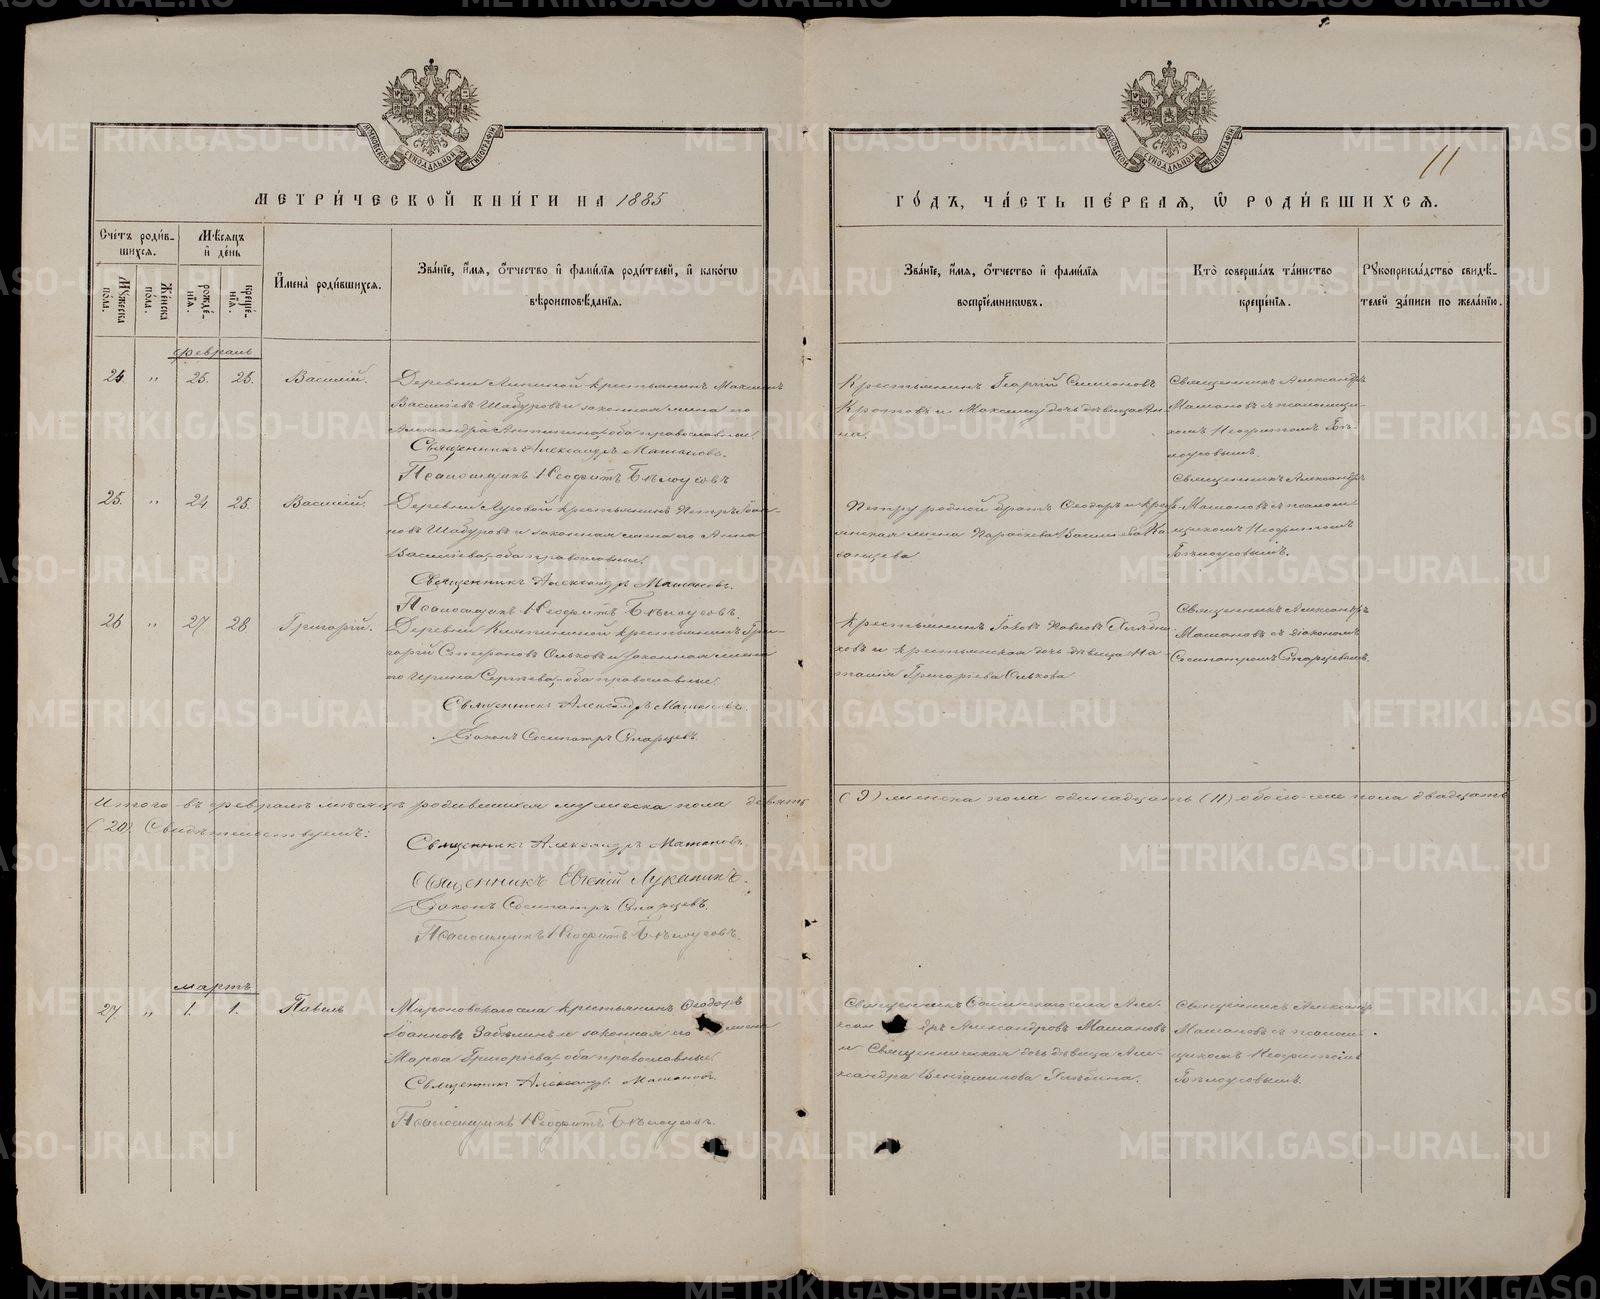 МЕТРИ́ЧЕСКОЙ КНИ́ГИ НА 1885
Сче́тъ роди́в-
шихся.
Мѣсяцъ
и҆ де́нь
Мꙋ́жеска
пола.
Же́нска
пола.
рожде́-
нїя.
креще́-
нїя.
И҆мена̀ роди́вшихся.
Зва́нїе, и҆́мя, ѻ҆́тчество и҆ фами́лїя роди́телей, и҆ како́гѡ
вѣроисповѣ́данїя.
февраль
24. " 25. 25. Василій.
Деревни крестьянинъ Максимъ
Васильевъ Шабуровъ и законная жена его
Александра оба православные.
Священникъ Александръ Машановъ.
Псаломщикъ Неофитъ Бѣлоусовъ
25. " 24 25. Василій.
Деревни Луговой крестьянинъ Петръ Іоан-
новъ Шабуровъ и законная жена его Анна
Васильева, оба православные.
Священникъ Александръ Машановъ.
Псаломщикъ Неофитъ Бѣлоусовъ.
26 " 27 28 Григорій.
Деревни крестьянинъ Гри-
горій Стефановъ Ольковъ и законная жена
его Ирина Сергѣева, оба православные.
Священникъ Александръ Машановъ.
Діаконъ Сосипатръ Старцевъ.
Итого въ февралѣ мѣсяцѣ родившихся мужеска пола девять
(20) Свидѣтельствуемъ:
Священникъ Александръ Машановъ
Священникъ Евгеній Луканинъ.
Діаконъ Сосипатръ Старцевъ.
Псаломщикъ Неофитъ Бѣлоусовъ.
мартъ
27. " 1. 1. Павелъ
Мироновскаго села крестьянинъ Ѳеодоръ
Іоанновъ Забѣлинъ и законная его жена
Марѳа Григорьева, оба православные.
Священникъ Александръ Машановъ.
Псаломщикъ Неофитъ Бѣлоусовъ.
11
ГО́ДЪ, ЧА́СТЬ ПЕ́РВАЯ, Ѡ҆ РОДИ́ВШИХСЯ.
Зва́нїе, и҆́мя, ѻ҆́тчество и҆ фами́лїя
воспрїе́мникѡвъ.
Кто̀ соверша́лъ та́инство
креще́нїя.
Рꙋкоприкла́дство свидѣ́-
телей за́писи по жела́нїю.
Крестьянинъ Георгій Симеоновъ
Кротовъ и Максима дочь дѣвица Ан-
на.
Священникъ Александръ
Машановъ съ псаломщи-
комъ Неофитомъ Бѣ-
лоусовымъ.
Петру родной братъ Ѳеодоръ и крестья-
янская жена Параскева Васильева
Священникъ Александръ
Машановъ съ псалом-
щикомъ Неофитомъ
Бѣлоусовымъ.
Крестьянинъ Іаковъ Павловъ
и крестьянская дочь дѣвица На-
талія Григорьева Олькова
Священникъ Александръ
Машановъ съ діакономъ
Сосипатромъ Старцевымъ.
(9) женска пола одинадцать (11) обоего же пола двадцать
Священникъ села Але-
ксандръ Александровъ Машановъ
и Священническая дочь дѣвица Але-
ксандра Веніаминова
Священникъ Александръ
Машановъ съ псалом-
щикомъ Неофитомъ
Бѣлоусовымъ.
METRIKI.GASO-URAL.RU